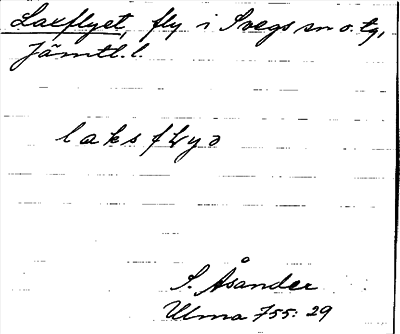 Laxflyet, fly i Svegs sn o. tg,
Jämtl. l.
laksflyə
S. Åsander
Ulma 755: 29